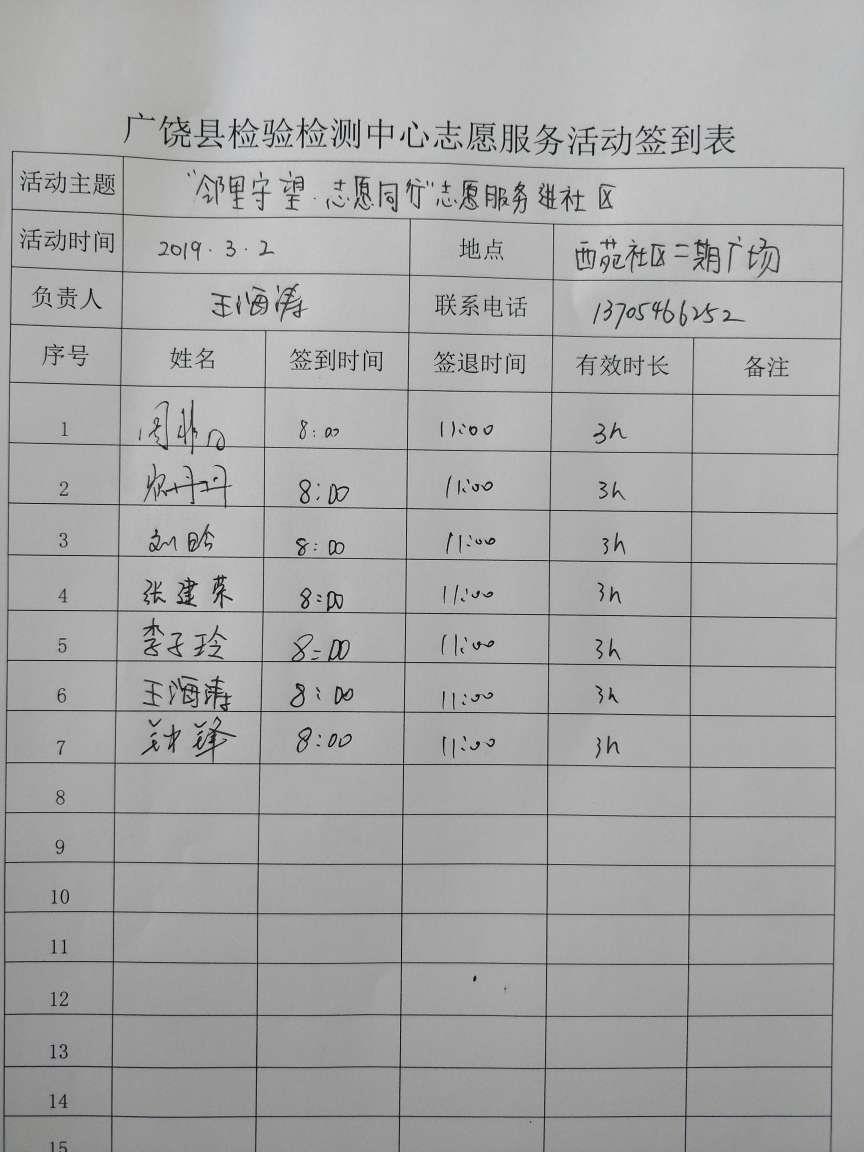 广饶县检验检测中心志愿服务活动签到表
活动主题 "邻里守望·志愿同行"志愿服务进社区
活动时间 2019.3.2 地点 西苑社区二期广场
负责人 王海涛 联系电话 13705466252
序号 姓名 签到时间 签退时间 有效时长 备注
1 8:00 11:00 3h
2 8:00 11:00 3h
3 8:00 11:00 3h
4 张建荣 8:00 11:00 3h
5 李子玲 8:00 11:00 3h
6 王海涛 8:00 11:00 3h
7 钟锋 8:00 11:00 3h
8
9
10
11
12
13
14
15